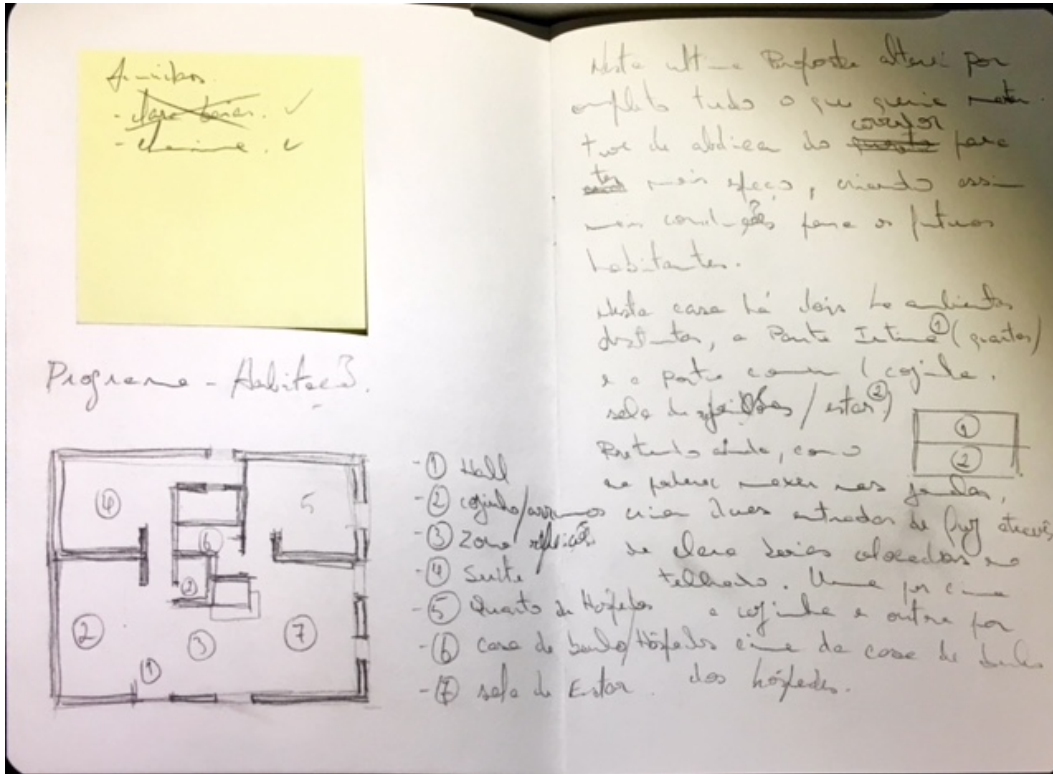 - Claraboias. ✓
- Chaminé. ✓
Programa - Habitação 3.
4
5
6
2
2
3
7
1
- ① Hall
- ② cozinha/arrumos
- ③ Zona refeição
- ④ Suite
- ⑤ Quarto de Hóspedes
- ⑥ casa de banho/Hóspedes
- ⑦ sala de Estar.
Nesta ultima Proposta alterei por
completo tudo o que queria
tive de abdicar do corredor para
ter mais espaço, criando assim
condições para os futuros
habitantes.
Nesta casa há dois ambientes
distintos, a Parte Intima ① (quartos)
e a parte comum (cozinha,
sala de refeições / estar ②)
①
②
Pretendo ainda, como
não poderei mexer nas janelas,
criar duas entradas de luz através
de clara boias colocadas no
telhado. Uma por cima
a cozinha e outra por
cima da casa de banho
dos hóspedes.